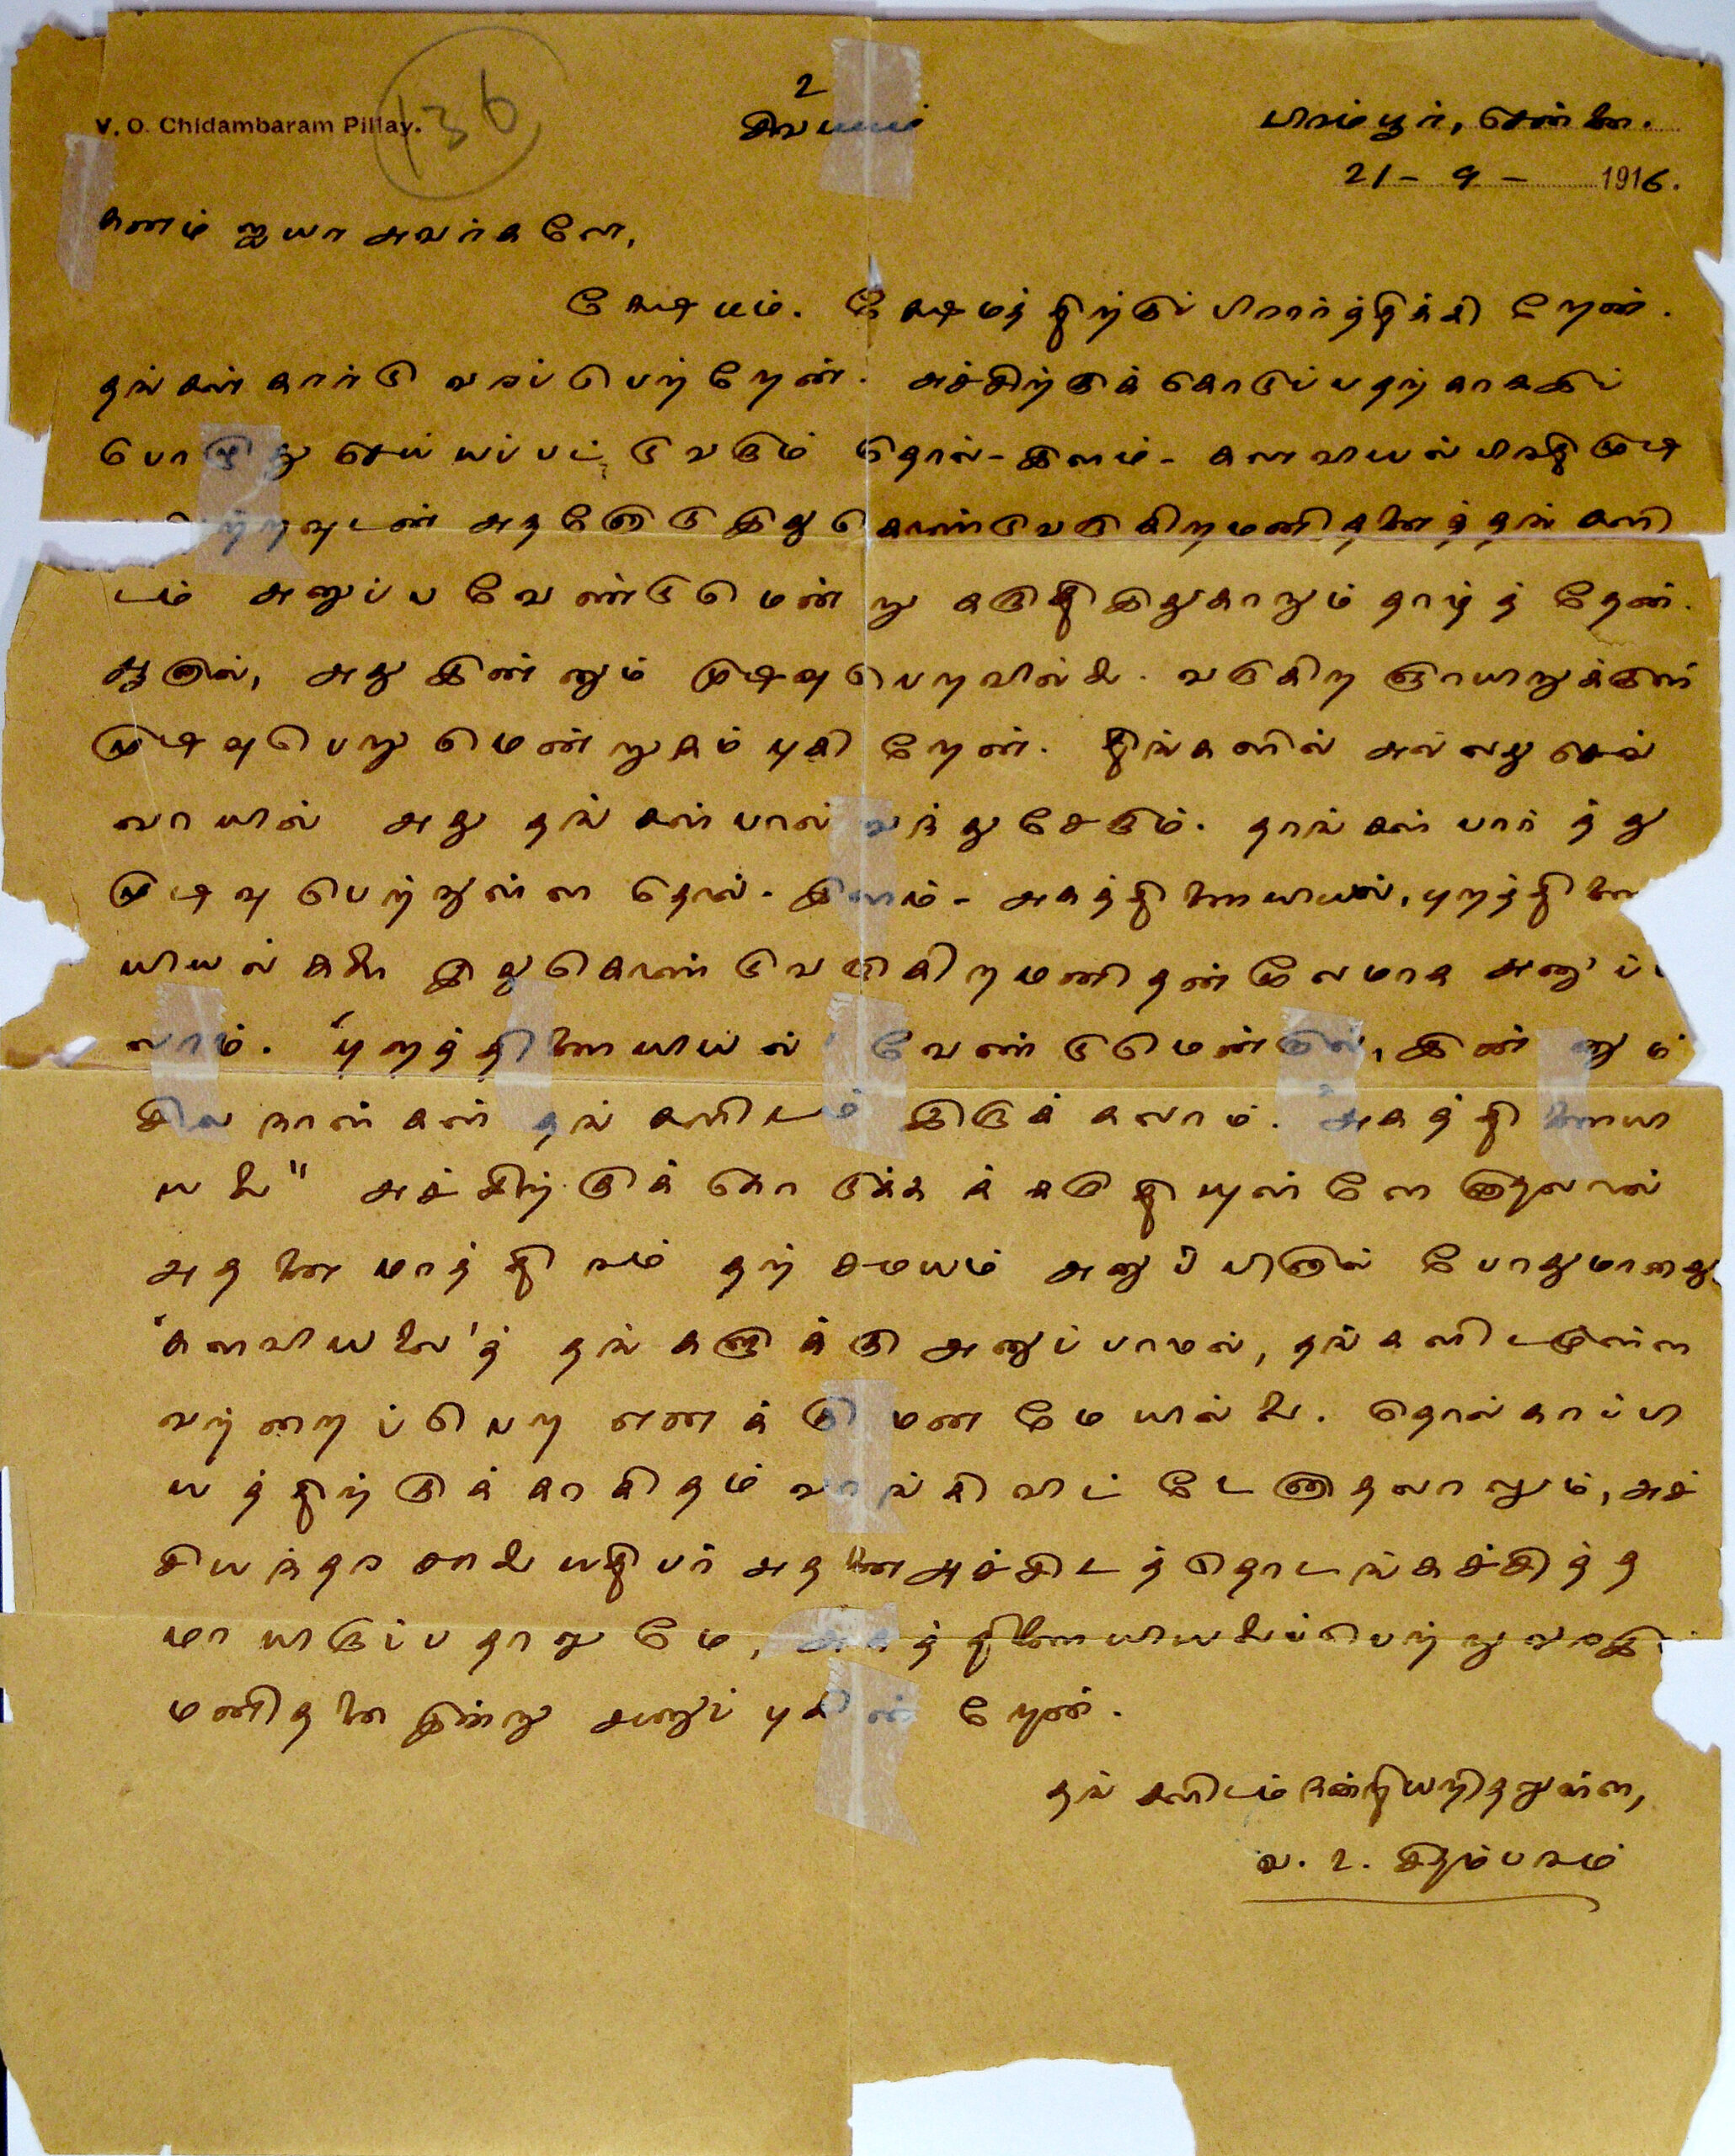 2
V. O. Chidambaram Pillay. 136 சிவமயம் பிரம்பூர், சென்னை.
21 - 9 - 1916.
கனம் ஐயா அவர்களே,
க்ஷேமம். க்ஷேமத்திற்குப் பிரார்த்திக்கிறேன்.
தங்கள் கார்டு வரப்பெற்றேன். அச்சிற்குக் கொடுப்பதற்காகஇப்
பொழுது செய்யப்பட்டுவரும் தொல்-இளம்-களவியல் பிரதி முடி
ற்றவுடன் அதனோடு இதுகொண்டுவருகிறமனிதனைத் தங்களி
டம் அனுப்பவேண்டுமென்று கருதி இதுகாறும் தாழ்த்தேன்.
ஆனால், அது இன்னும் முடிவுபெறவில்லை. வருகிற ஞாயிறுக்குள்
முடிவுபெறுமென்றுநம்புகிறேன். திங்களில் அல்லது செவ்
வாயில் அது தங்கள்பால் வந்துசேரும். தாங்கள் பார்த்து
முடிவு பெற்றுள்ள தொல்-இளம்-அகத்திணையியல், புறத்திணை
யியல்களை இதுகொண்டுவருகிறமனிதன்மூலமாக அனுப்ப
லாம். "புறத்திணையியல்" வேண்டுமென்றால், இன்னும்
சில நாள்கள் தங்களிடம் இருக்கலாம். "அகத்திணையி
யலை" அச்சிற்குக் கொடுக்கக் கருதியுள்ளேனாதலால்
அதனை மாத்திரம் தற்சமயம் அனுப்பினால் போதுமானது.
'களவியலை'த் தங்களுக்கு அனுப்பாமல், தங்களிடமுள்ள
வற்றைப்பெற எனக்கு மனமேயில்லை. தொல்காப்பி
யத்திற்குக் காகிதம் வாங்கிவிட்டேனாதலானும், அச்
சியந்தரசாலையதிபர் அதனை அச்சிடத்தொடங்கச்சித்த
மாயிருப்பதானுமே, அகத்திணையியலைப்பெற்றுவரஇ
மனிதனை இன்று அனுப்புகின்றேன்.
தங்களிடம் நன்றியறிதலுள்ள,
வ. உ. சிதம்பரம்